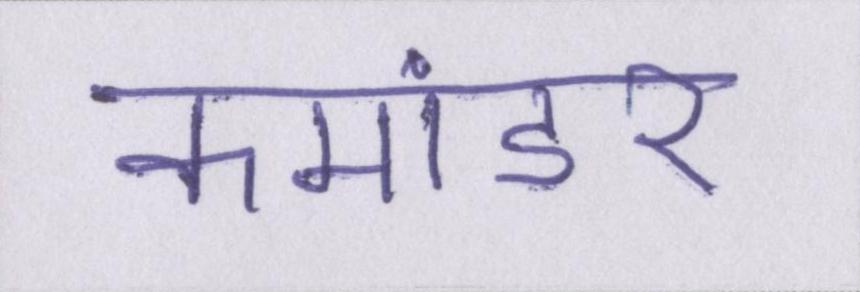 कमांडर